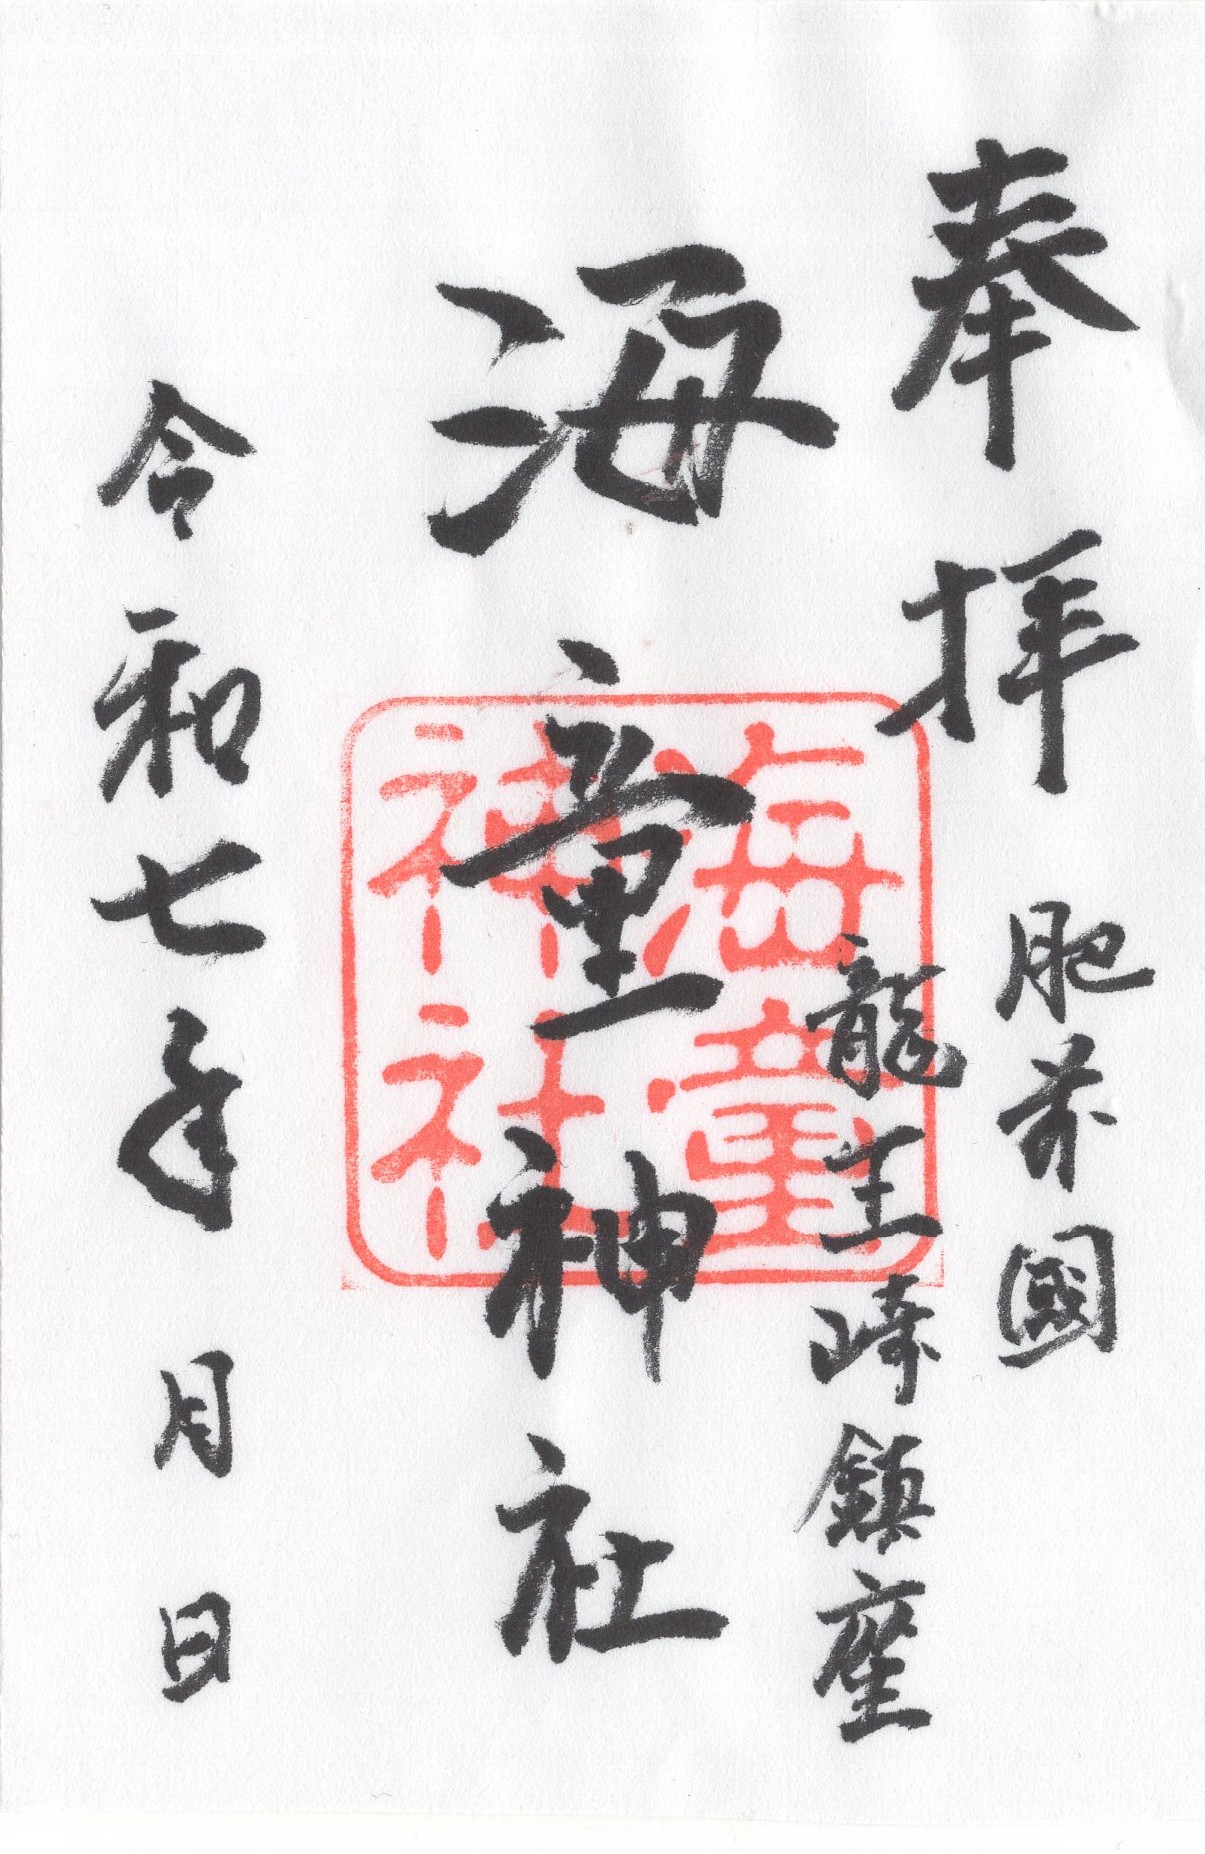 奉拝
肥前國
龍王崎鎮座
海童神社
海童
神社
令和七年 月 日